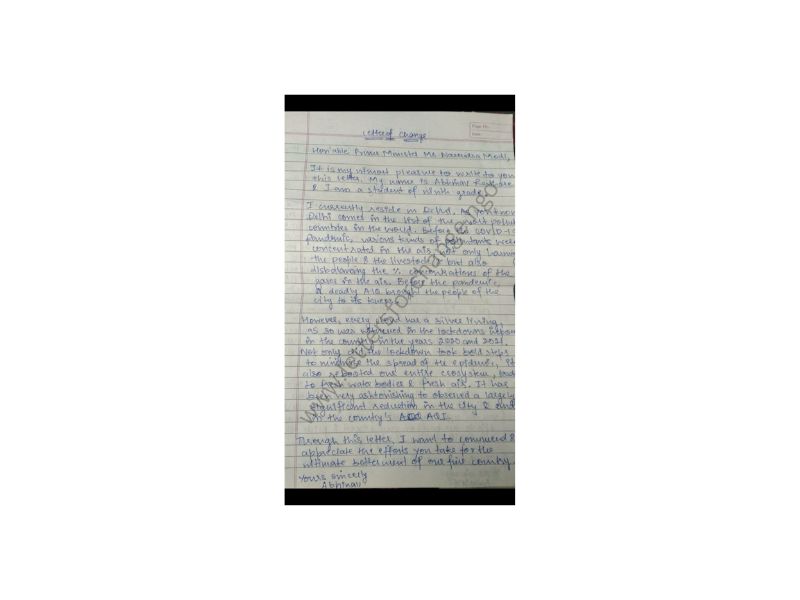 Page No.
Date
Letter of Change
Hon'able Prime Minister Mr. Narendra Modi,
It is my utmost pleasure to write to you
this letter. My name is Abhinav
& I am a student of ninth grade
I currently reside in Delhi. As
Delhi comes in the list of the most
countries in the would. Before the COVID-1
Pandemic, various kinds of pollutants were
concentrated in the air, not only
the people & the livestock, but also
disbalancing the % concentrations of the
gases in the air. Before the pandemic,
a deadly AIQ brought the people of the
city to its knees
However, every cloud has a silver lining
as so was witnessed in the lockdowns
in the country in the years 2020 and 2021.
Not only did the lockdown took bold steps
to minimise the spread of the epidemic, it
also rebooted our entire ecosystem,
to fresh water bodies & fresh air. It has
been very astonishing to observed a largely
significant reduction in the city &
in the country's AQI.
Through this letter, I want to commend &
appreciate the efforts you take for the
ultimate betterment of our fine country
Yours sincerely
Abhinav
www.lettersforchange.ngo